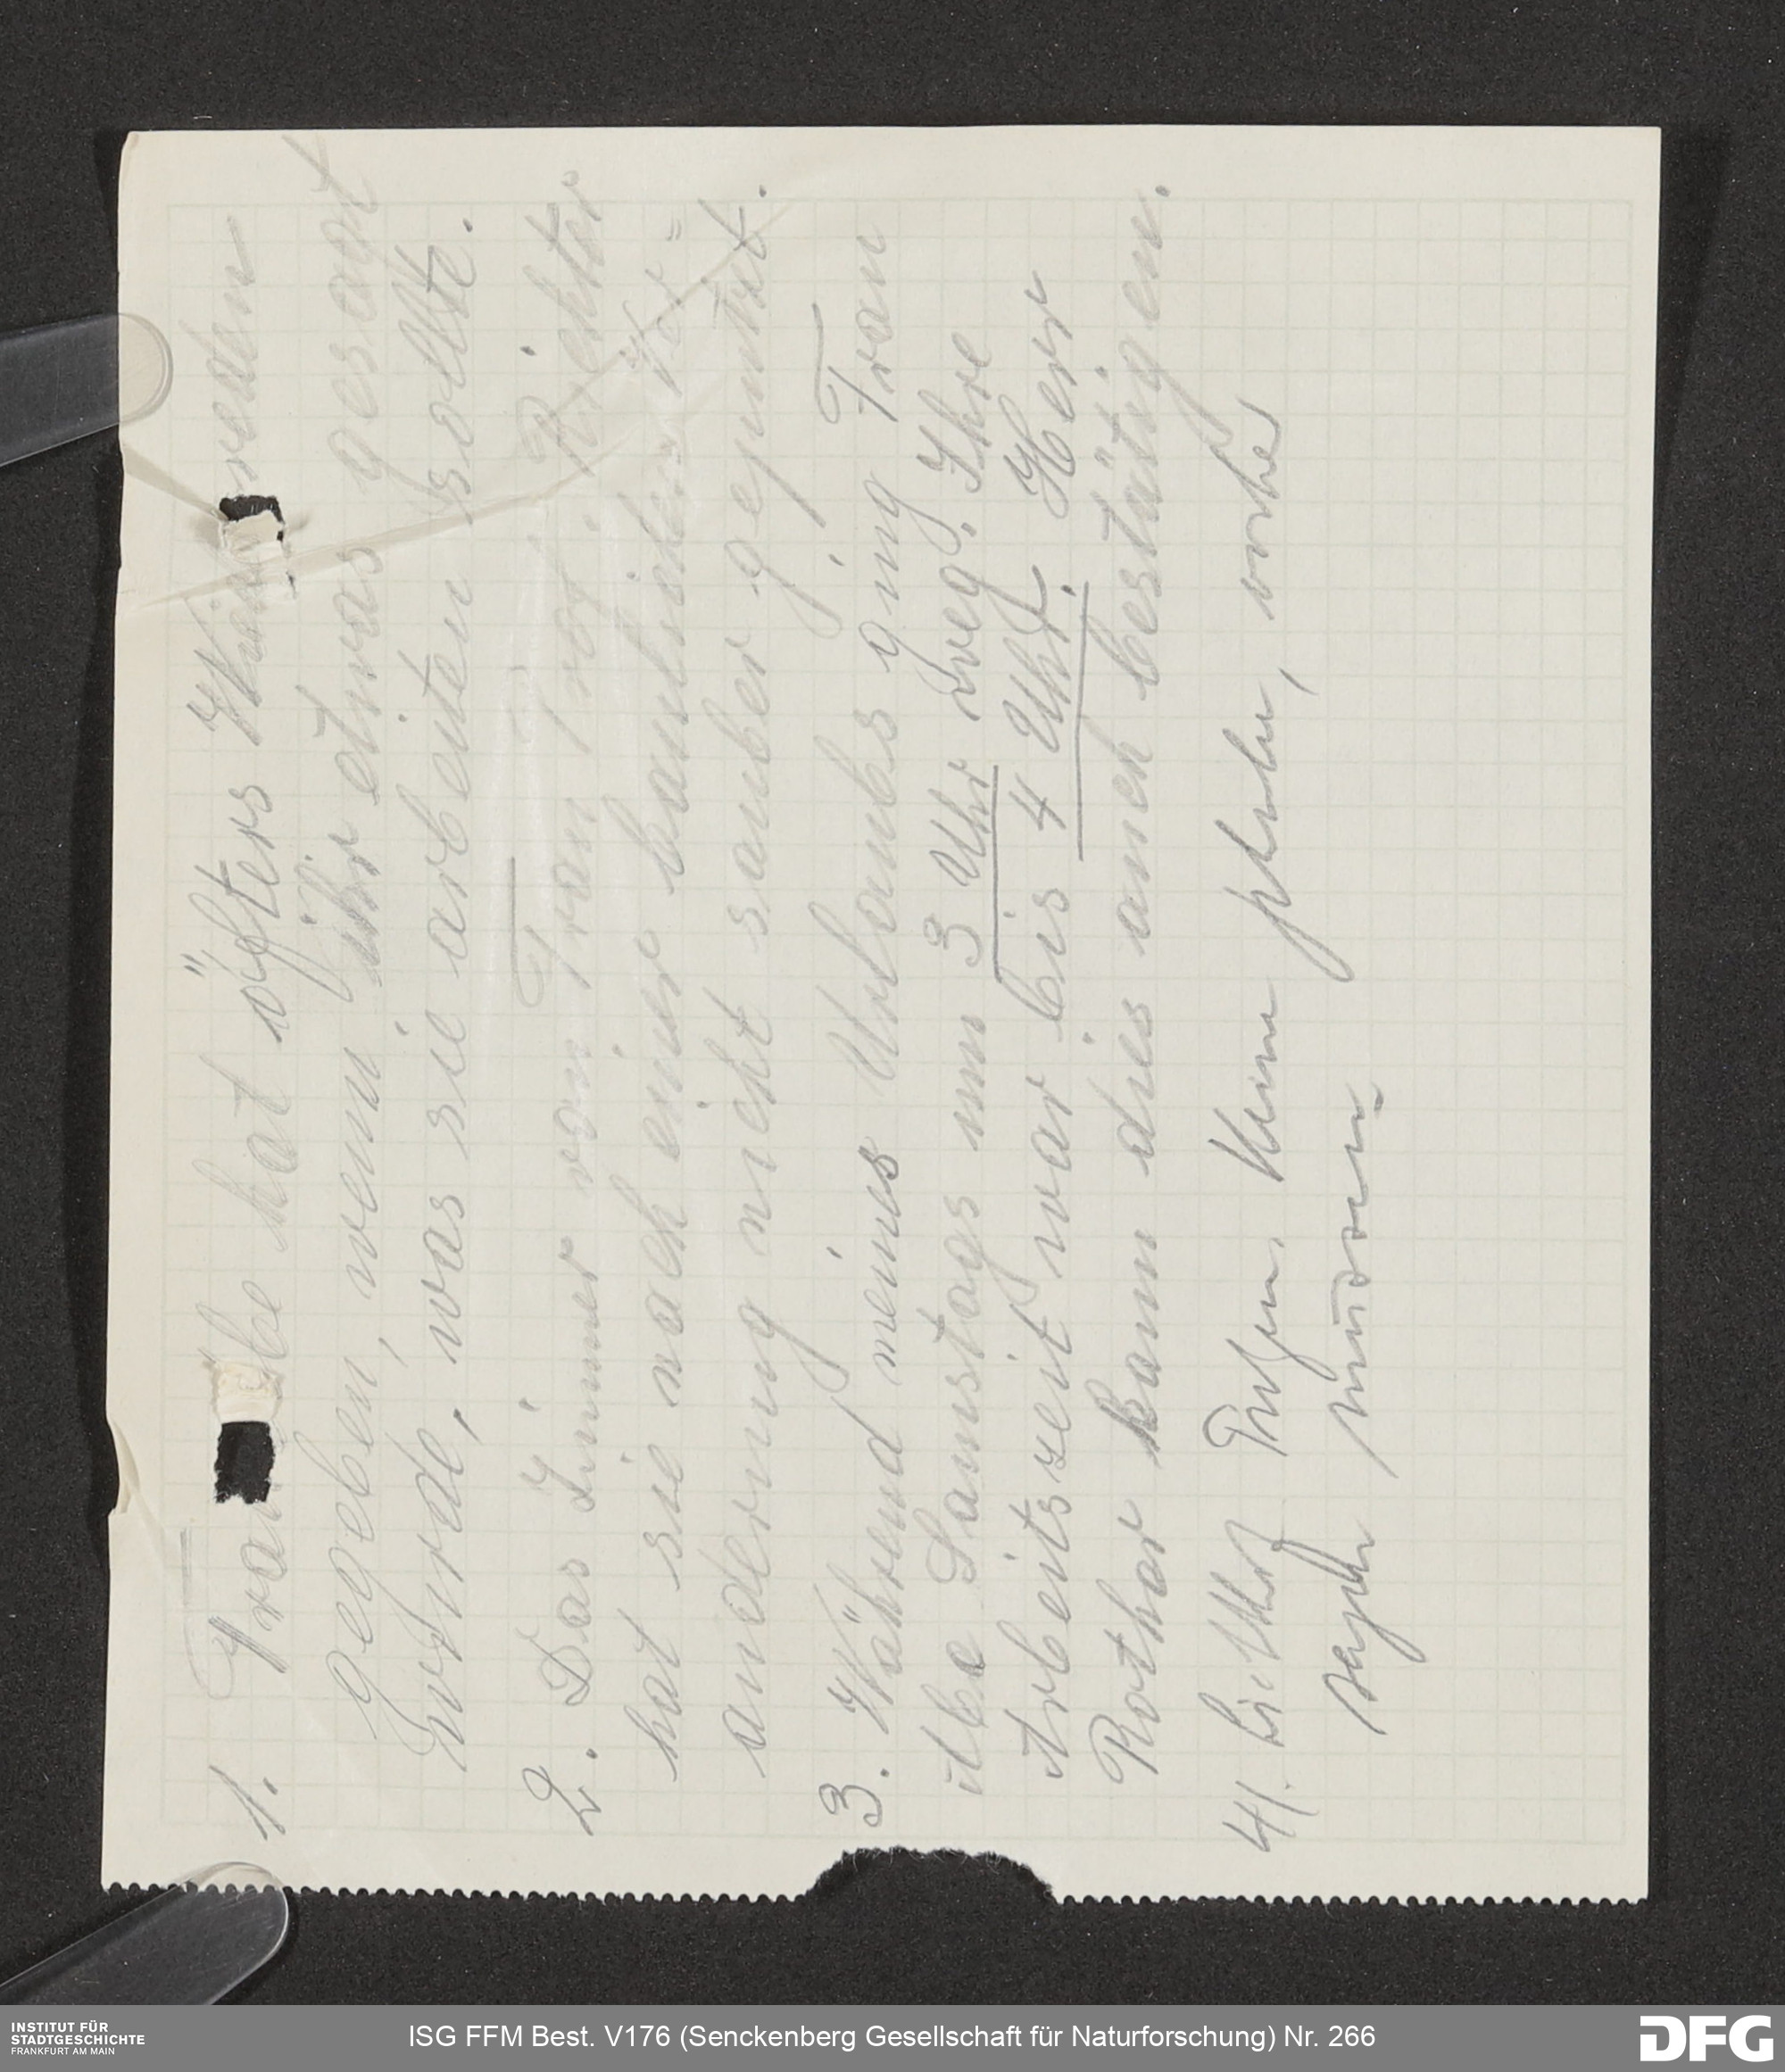 1. Frau Ilbe hat öfters Widerreden
gegeben, wenn ihr etwas gesagt
wurde, was sie arbeiten sollte.
2. Das Zimmer von Frau Prof. Richter
hat sie nach einer baulichen Ver=
änderung nicht sauber geputzt.
3. Während meines Urlaubs ging Frau
Ilbe Samstags um 3 Uhr weg. Ihre
Arbeitszeit war bis 4 Uhr. Herr
Rother kann dies auch bestätigen.
4/. vorher
müssen
INSTITUT FÜR
STADTGESCHICHTE
FRANKFURT AM MAIN
ISG FFM Best. V176 (Senckenberg Gesellschaft für Naturforschung) Nr. 266
DFG